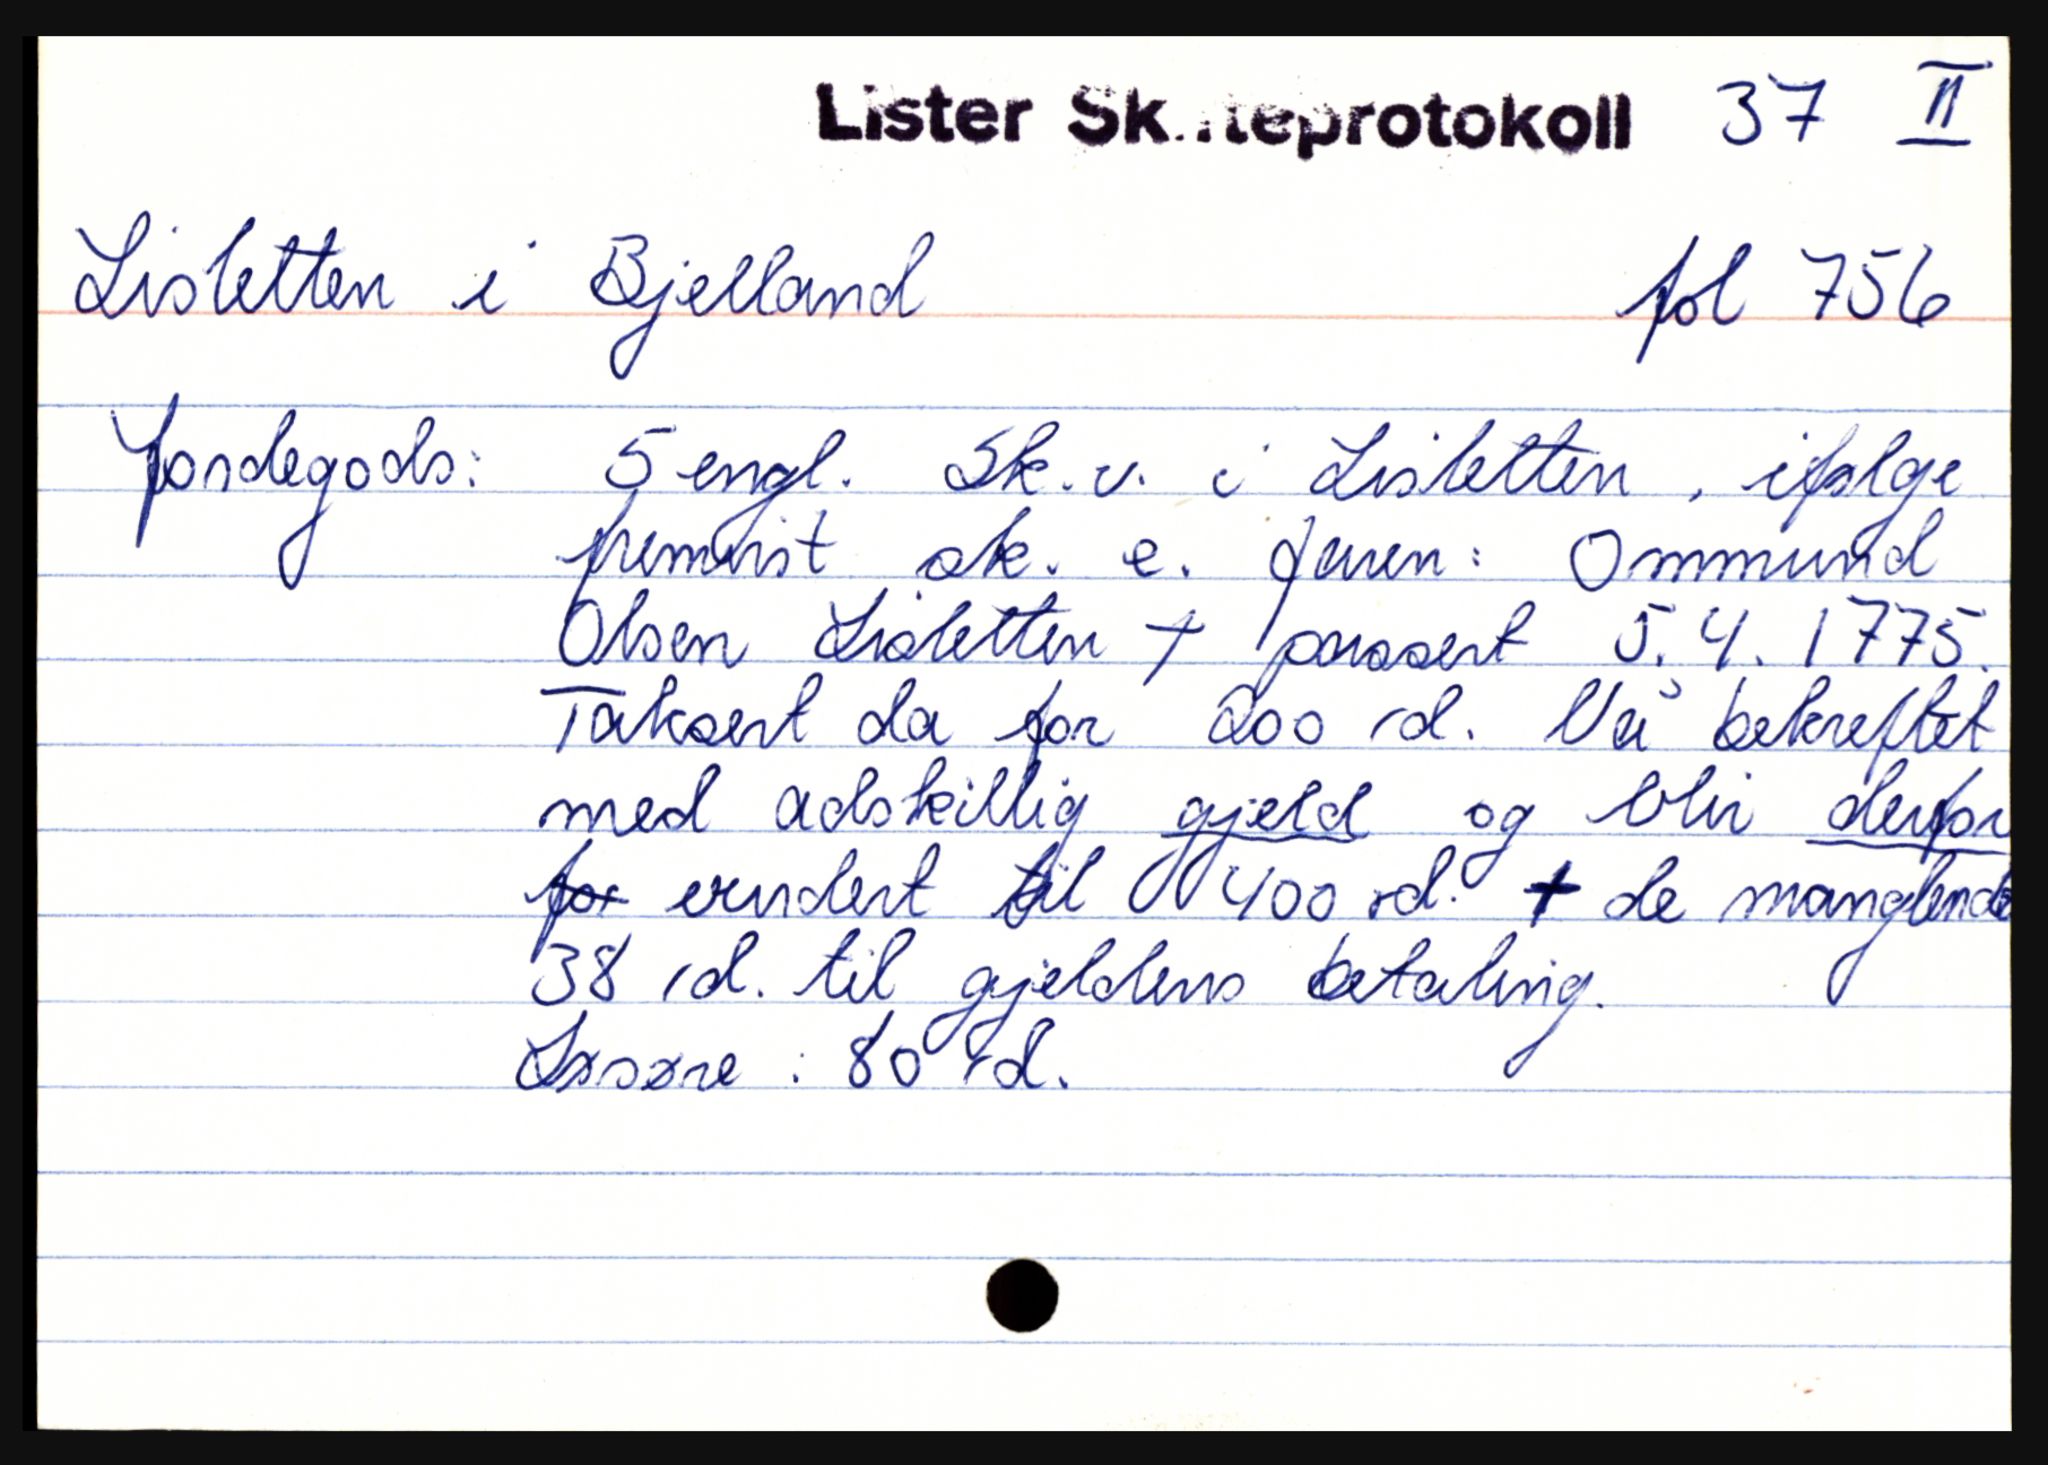 Lister Skifteprotokoll 37 II
Lisletten i Bjelland fol 756
Jordegods: 5 engl. Sk.v. i Lisletten, ifølge
fremvist sk. e. faren: Ommund
Olsen Lisletten + passert 5.4.1775.
Taksert da for 200 rd. Nå bekreftet
med adskillig gjeld og blir derfor
for vurdert til 400 rd. + de manglende
38 rd. til gjeldens betaling.
Løsøre: 80 rd.